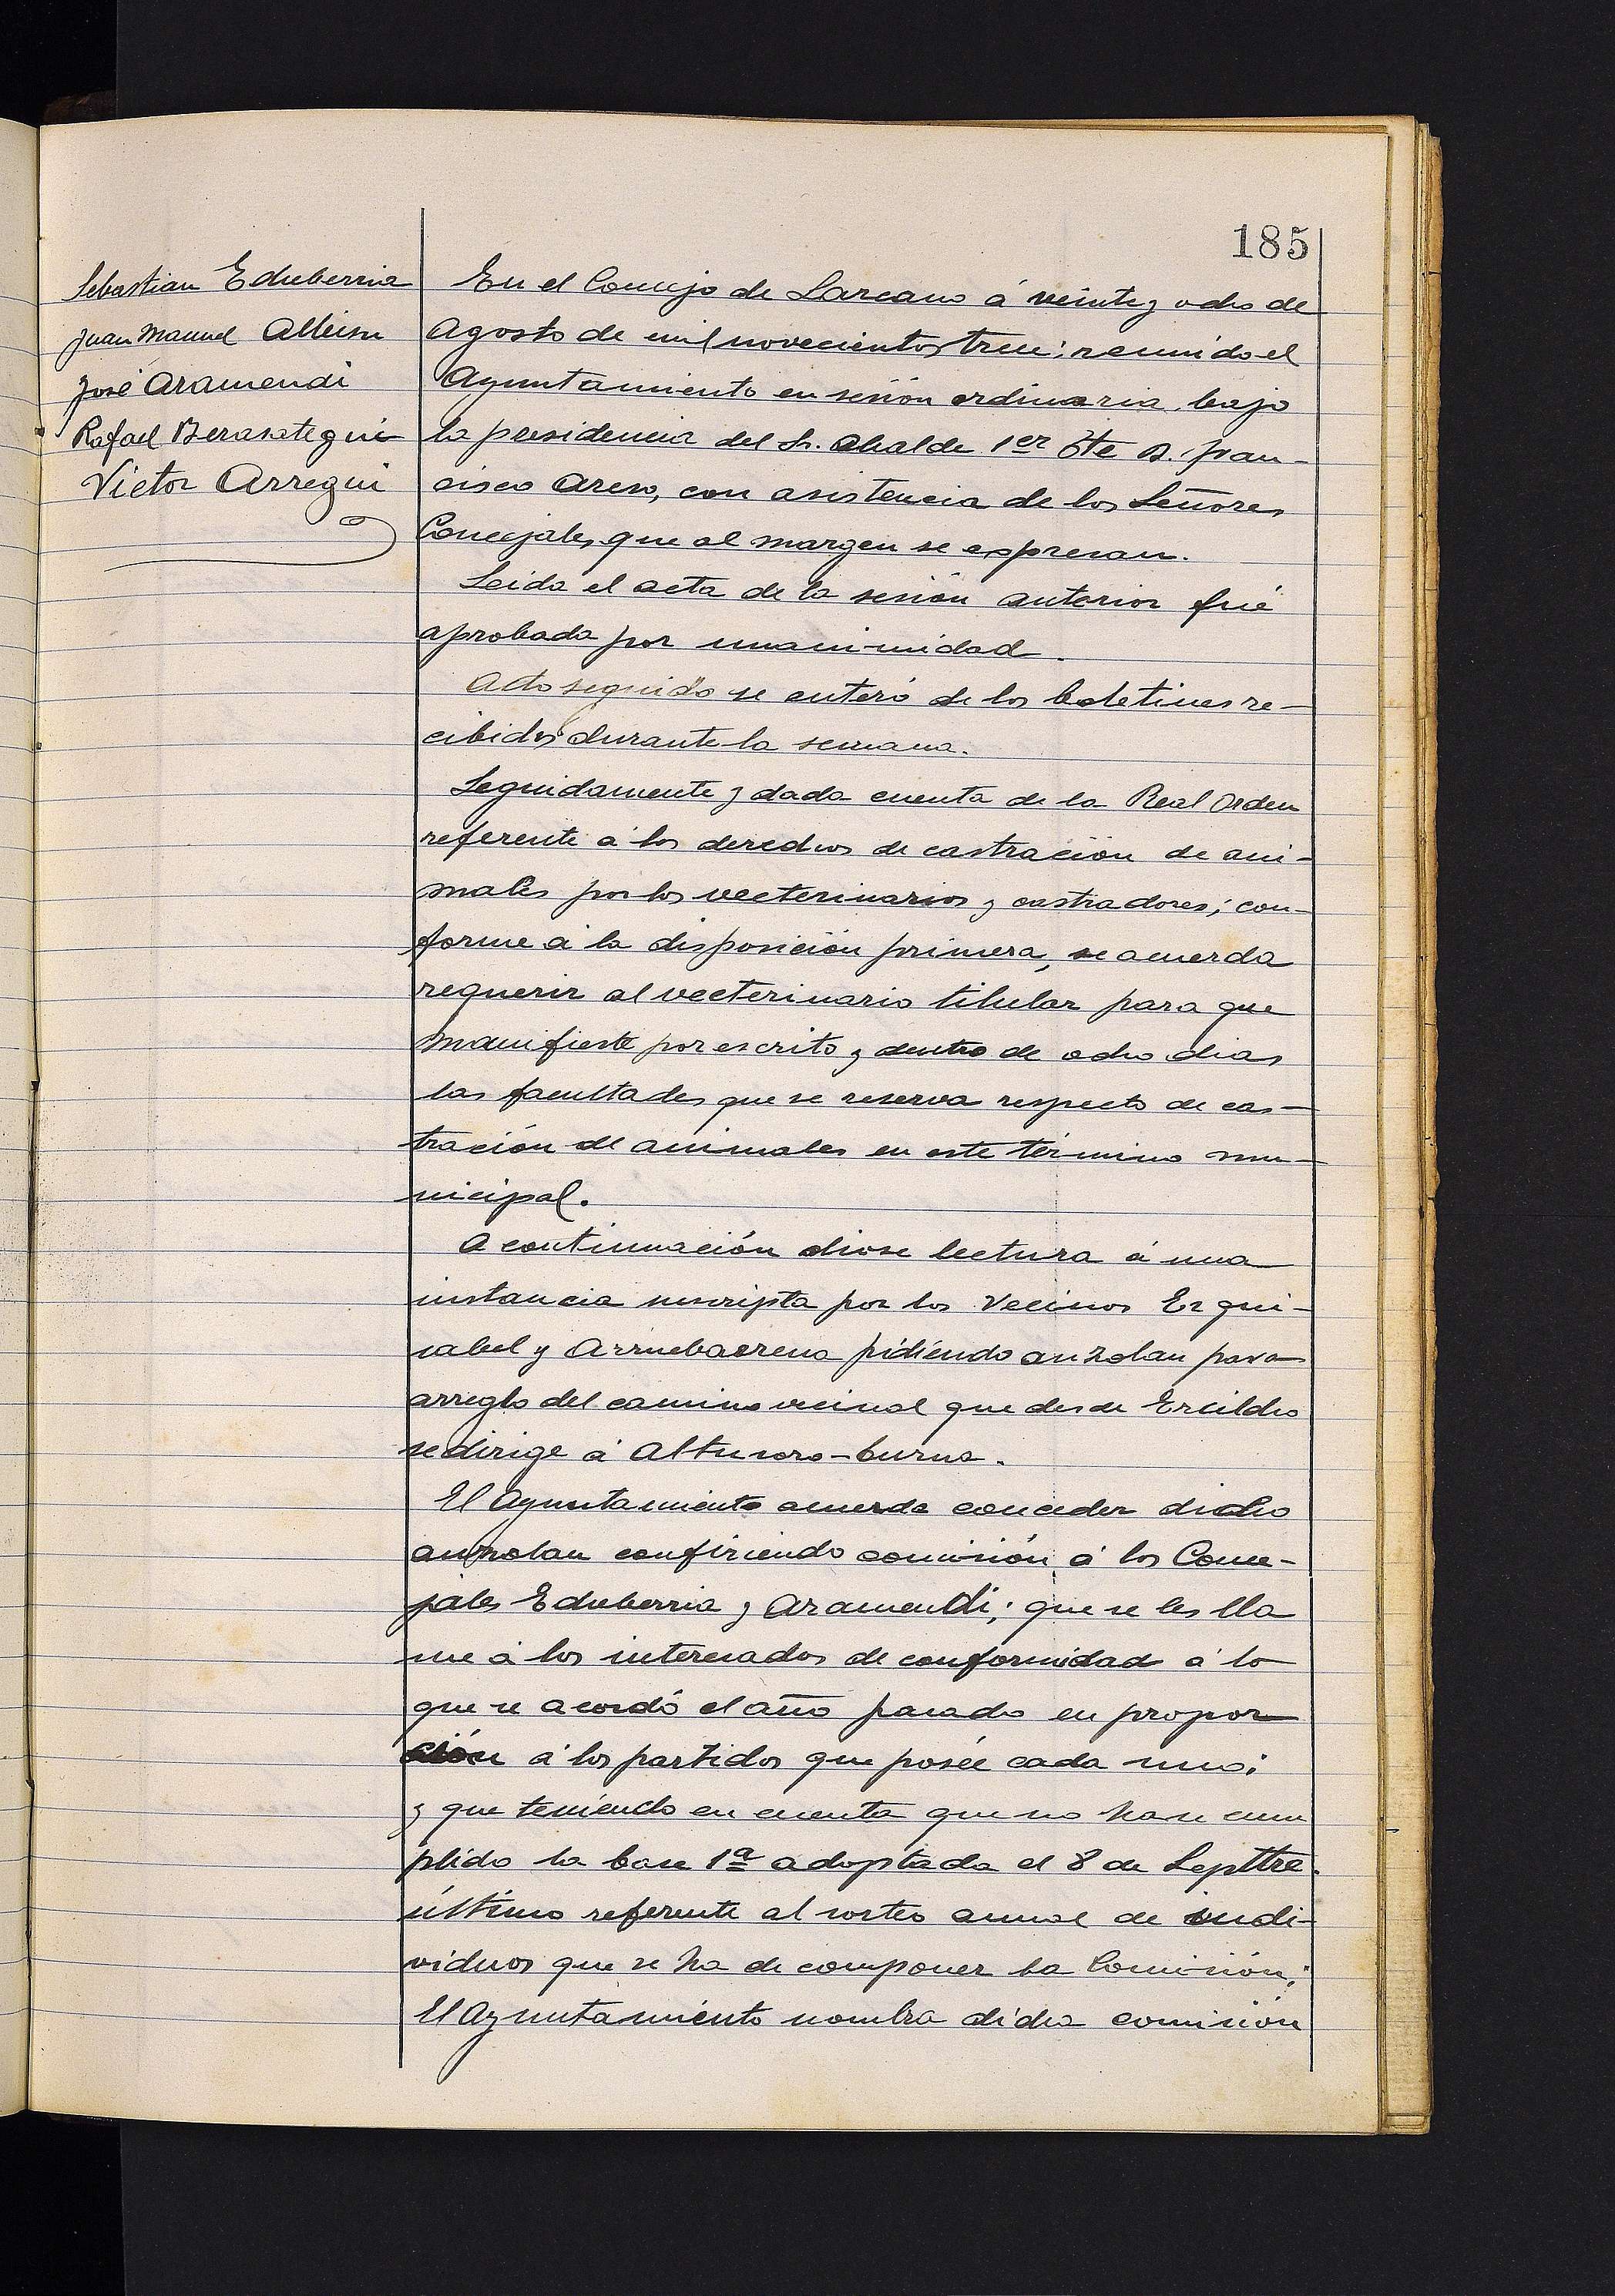 185
Sebastian Echeberria
Juan Manuel Albisu
José Aramendi
Rafael Berasategui
Victor Arregui
En el Concejo de Lazcano á veinte y ocho de
Agosto de mil novecientos trece: reunido el
Ayuntamiento en sesión ordinaria bajo
la presidencia del Sr. Alcalde 1er Tte D. Fran-
cisco Areso, con asistencia de los Señores
Concejales que al margen se expresan.
Leida el acta de la sesión anterior fué
aprobada por unanimidad.
Acto seguido se enteró de los boletines re-
cibidos durante la semana.
Seguidamente y dada cuenta de la Real Orden
referente á los derechos de castración de ani-
males por los vecterinarios y castradores; con-
forme á la disposición primera, se acuerda
requerir al vecterinario titular para que
manifieste por escrito y dentro de ocho dias
las facultades que se reserva respecto de cas-
tración de animales en este término mu-
nicipal.
A continuación diose lectura á una
instancia suscripta por los Vecinos Ezqui-
sabel y Arruebarrena pidiendo auzolan para
arreglo del camino vecinal que desde Ercilcho
se dirige á Altusoro-burua.
El Ayuntamiento acuerda conceder dicho
auzolan confiriendo comisión á los Conce-
jales Echeberria y Aramendi; que se les lla
me á los interesados de conformidad á lo
que se acordó el año pasado en propor
ción á los partidos que posée cada uno;
y que teniendo en cuenta que no ha se cum
plido la base 1ª adoptada el 8 de Septtre.
último referente al sorteo anual de indi-
viduos que se ha de componer la Comisión;
El Ayuntamiento nombra dicha comisión